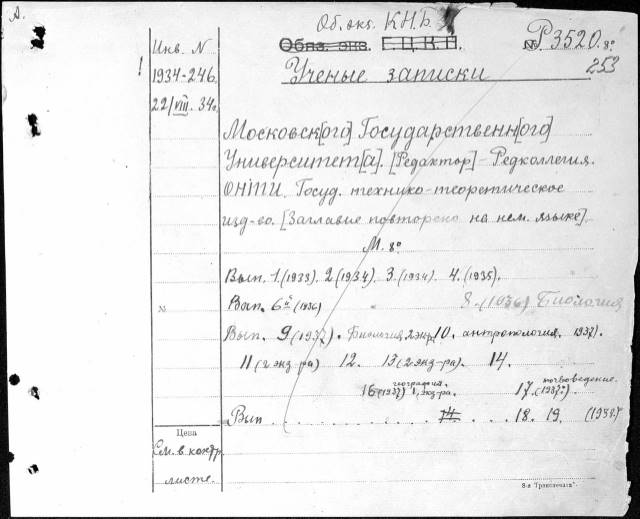 А.
Об. экз. К.Н.Б.
Инв. N
Обяз. экз. Г.Ц.К.П.
№ Р 3520. 8°
!
1934-246.
Ученые записки
253
22/VIII. 34г.
Московск[ого] Государственн[ого]
Университет[а]. [Редактор] – Редколлегия.
ОНТИ. Госуд. технико-теоретическое
изд-во. [Заглавие повторено на нем. языке].
М. 8°
Вып. 1.(1933). 2(1934). 3.(1934). 4.(1935).
Вып. 6й (1936) 8.(1936) Биология
Вып. 9(1937). Биология 2 экз. 10. антропология. 1937).
11(2 экз-ра) 12. 13(2 экз-ра). 14.
16(1937) география. 1, экз-ра. 17. почвоведение. (1937г.)
Вып 14. 18. 19. (1938г)
Цена
См. в контр.
листе.
8-я Транспечати".